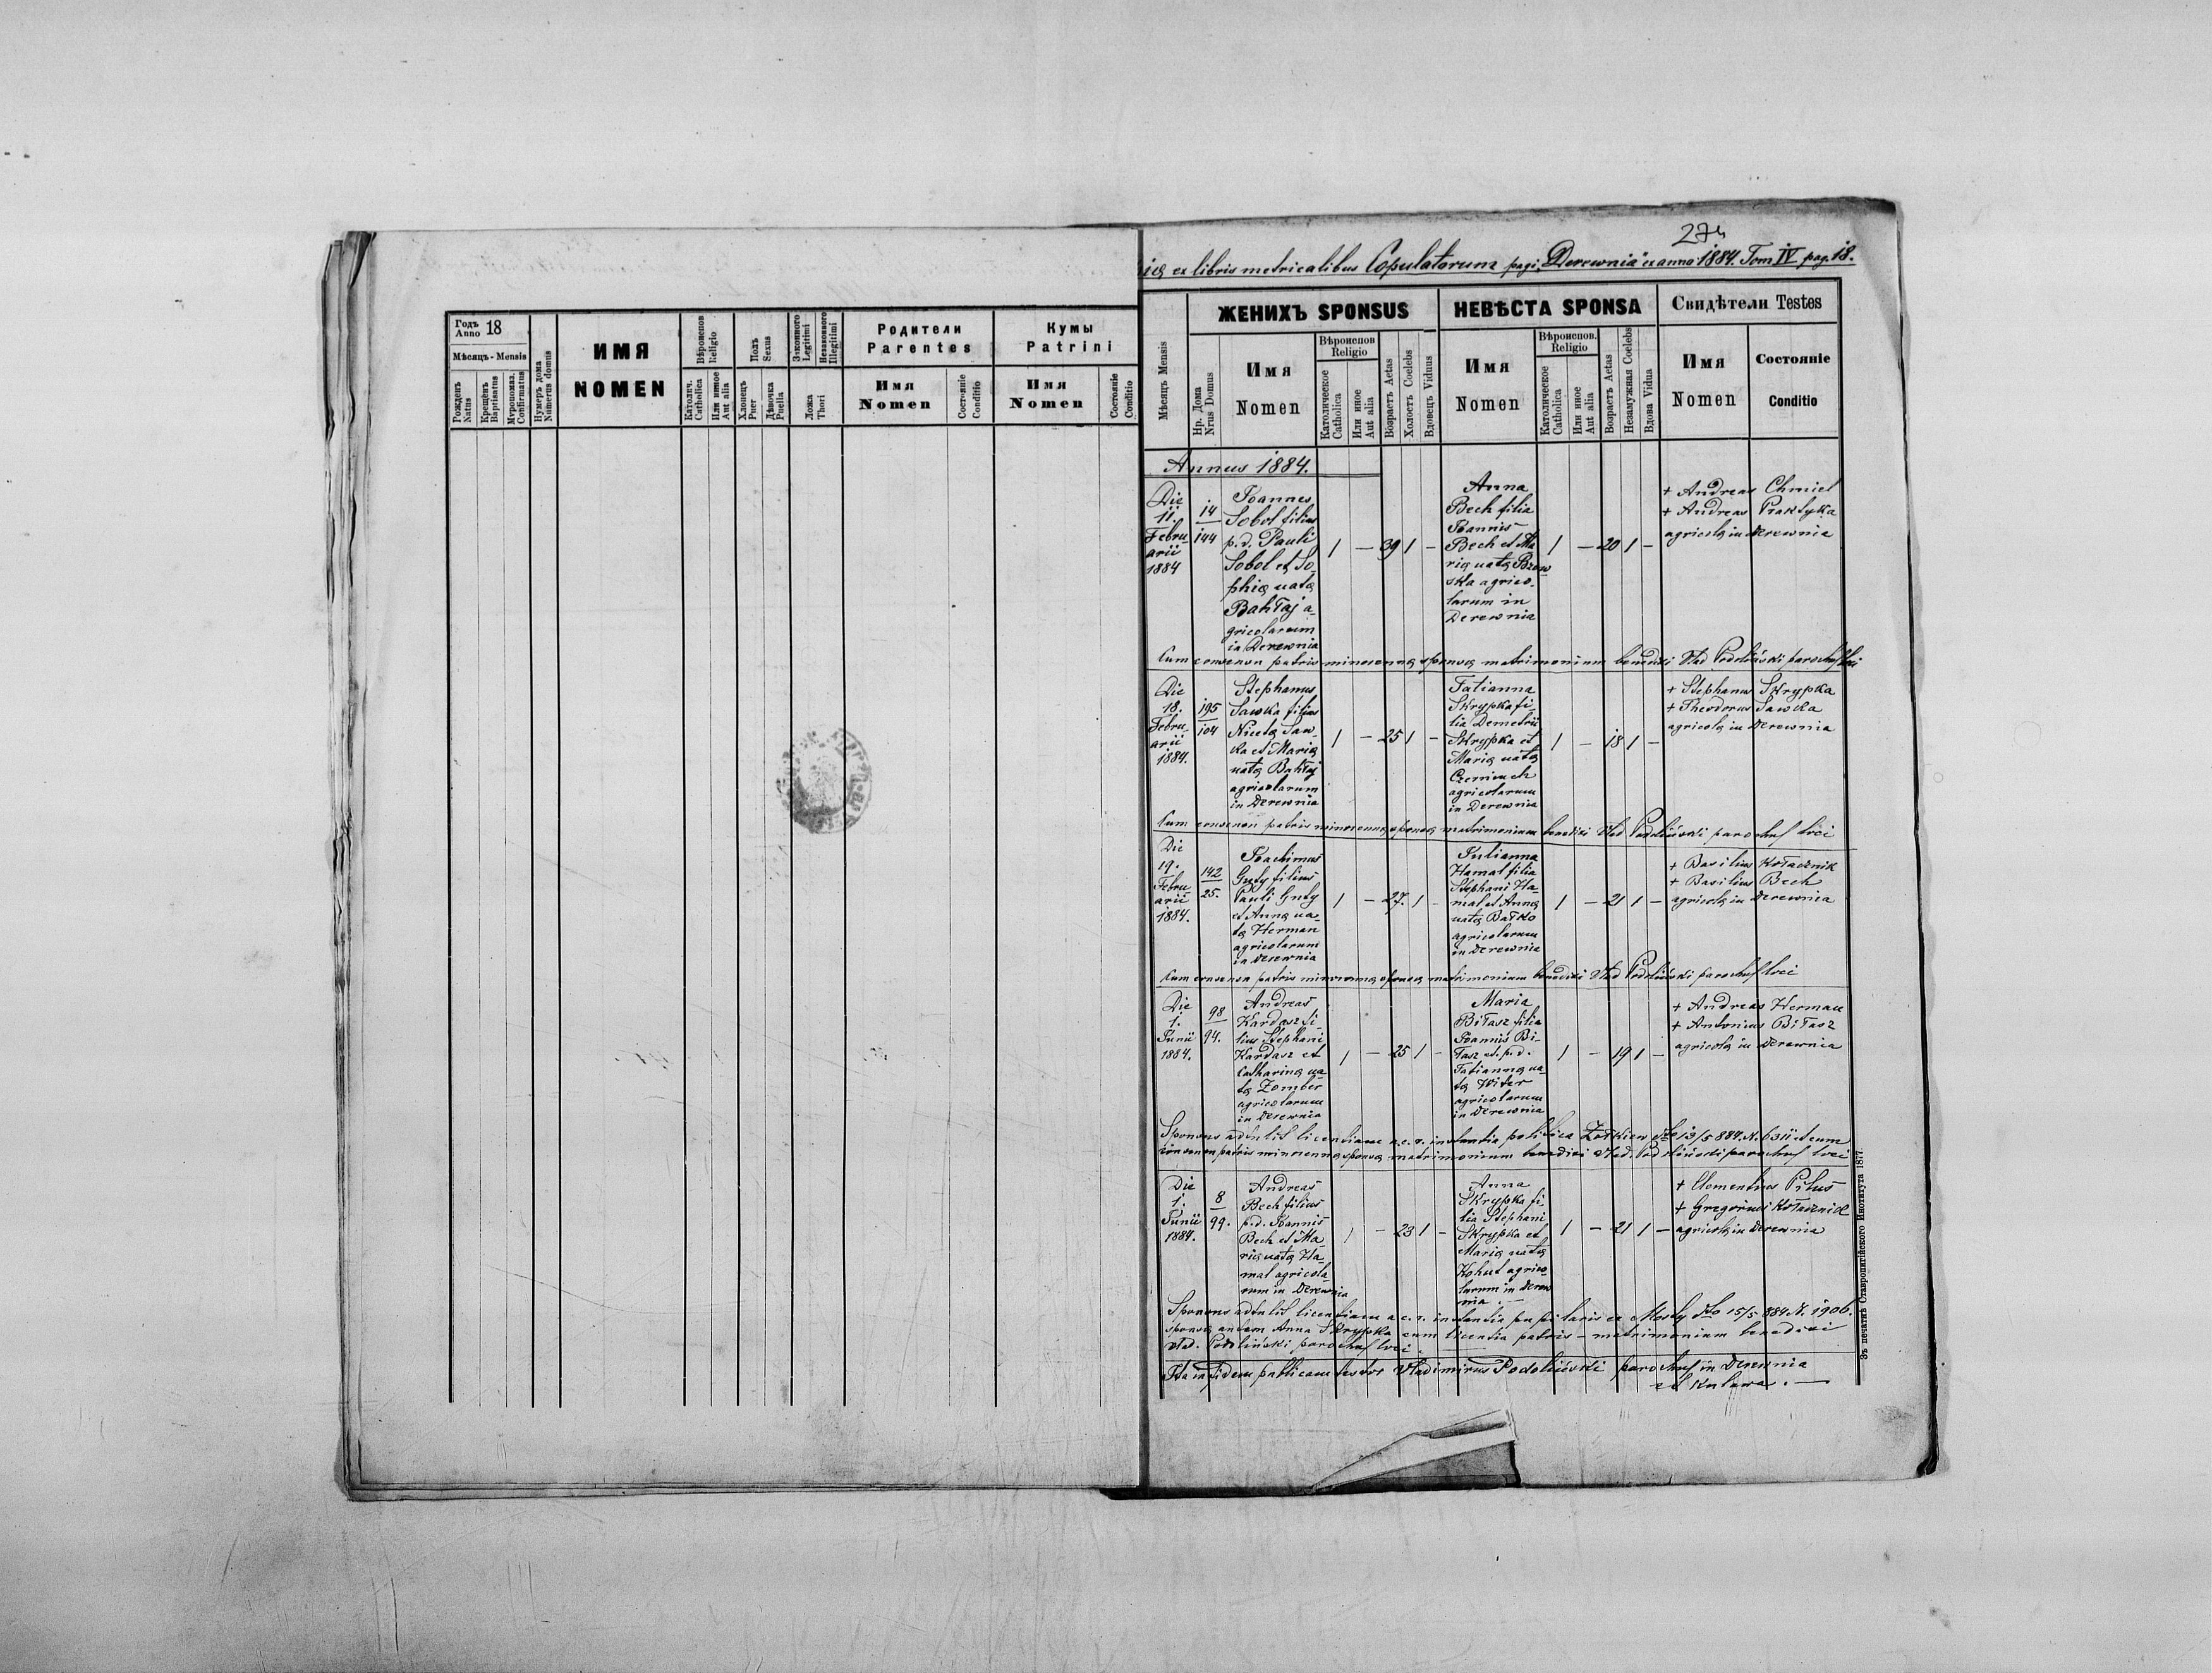 274
ex libris metricalibus Copulatorum pagi "Derewnia" ex anno 1884. Tom IV pag. 18.
Годъ Anno 18
Мѣсяцъ - Mensis
Рожденъ Natus
Крещенъ Baptisatus
Муропомаз. Confirmatus
Нумеръ дома Numerus domus
ИМЯ
NOMEN
Вѣроиспов Religio
Католич. Catholica
Или иное Aut alia
Полъ Sexus
Хлопецъ Puer
Дѣвочка Puella
Законного Legitimi
Незаконного Illegitimi
Ложа Thori
Родители
Parentes
Имя
Nomen
Состояніе Conditio
Кумы
Patrini
Имя
Nomen
Состояніе Conditio
Мѣсяцъ Mensis
ЖЕНИХЪ SPONSUS
Нр. Дома Nrus Domus
Имя
Nomen
Вѣроиспов Religio
Католическое Catholica
Или иное Aut alia
Возрастъ Aetas
Холостъ Coelebs
Вдовецъ Viduus
НЕВѢСТА SPONSA
Имя
Nomen
Вѣроиспов. Religio
Католическое Catholica
Или иное Aut alia
Возрастъ Aetas
Незамужная Coelebs
Вдова Vidua
Свидѣтели Testes
Имя
Nomen
Состояніе
Conditio
Annus 1884.
Die
11.
Febru-
arii
1884
14
144
Joannes
Sobol filius
p. d. Pauli
Sobol et So-
phia nata
Bahtaj a-
gricolarum
in Derewnia
1 — 39 1 —
Anna
Bech filia
Joannis
Bech et Ma
ria nata Brzow
ska agrico-
larum in
Derewnia
1 — 20 1 —
+ Andreas Chmiel
+ Andreas Praktyka
agricolæ in Derewnia
Cum consensu patris minorennæ sponsæ matrimonium benedixi Wlad Podoliński parochus loci
Die
18.
Febru-
arii
1884.
195
104
Stephanus
Sawka filius
Nicetæ Saw-
ka et Maria
nata Bahtaj
agricolarum
in Derewnia
1 — 25 1 —
Tatianna
Skrypka fi-
lia Demetrii
Skrypka et
Maria nata
agricolarum
in Derewnia
1 — 18 1 —
+ Stephanus Skrypka
+ Theodorus Sawka
agricolæ in Derewnia
Cum consensu patris minorennæ sponsæ matrimonium benedixi Wlad Podoliński parochus loci
Die
19.
Febru
arii
1884.
142
25.
Joachimus
Guty filius
Pauli Guty
et Anna na-
ta Herman
agricolarum
in Derewnia
1 — 27. 1 —
Julianna
Hamal filia
Stephani Ha-
mal et Anna
nata Batko
agricolarum
in Derewnia
1 — 21 1 —
+ Basilius Kołacznik
+ Basilius Bech
agricolæ in Derewnia
Cum consensu patris minorennæ sponsæ matrimonium benedixi Wlad Podoliński parochus loci
Die
1.
Junii
1884.
98
94.
Andreas
Kardasz fi-
lius Stephani
Kardasz et
Catharina na-
ta Zomber
agricolarum
in Derewnia
1 — 25 1 —
Maria
Biłasz filia
Joannis Bi-
łasz et p. d.
Tatianna na-
ta Witer
agricolarum
in Derewnia
1 — 19 1 —
+ Andreas Herman
+ Antonius Biłasz
agricolæ in Derewnia
Sponsus adtulit licentiam a c. r. instantia politica Żołkiew dto 13/5 884. N. 6311 et cum
consensu patris minorennæ sponsæ matrimonium benedixi Wlad. Podoliński parochus loci
Die
1.
Junii
1884.
8
99.
Andreas
Bech filius
p. d. Joannis
Bech et Ma-
ria nata Ha-
mal agricola-
rum in Derewnia
1 — 23 1 —
Anna
Skrypka fi-
lia Stephani
Skrypka et
Maria nata
Kohut agrico-
larum in Derew
nia
1 — 21 1 —
+ Clementius Pilus
+ Gregorius Kołacznik
agricolæ in Derewnia
Sponsus adtulit licentiam a c. r. instantia pupilaris ex Mosty dto 15/5 884 N. 1906.
sponsa autem Anna Skrypka cum licentia patris — matrimonium benedixi
Wlad. Podoliński parochus loci.
Ita in fidem publicam testor Wladimirus Podoliński parochus in Derewnia
et Kulawa. —
Зъ печатнѣ Ставропигійского Института 1877